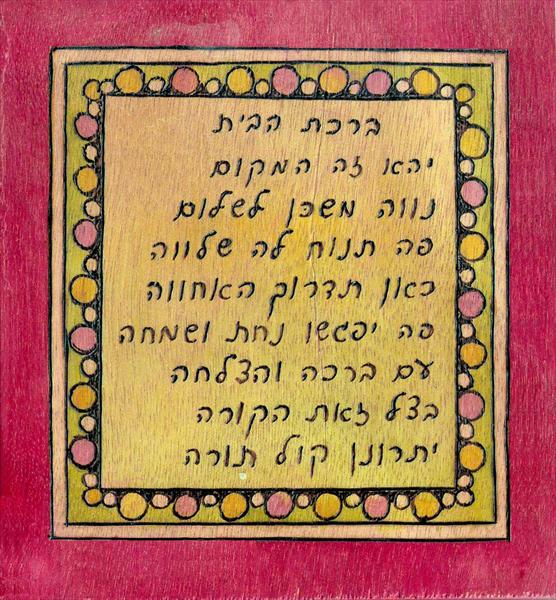 ברכת הבית
יהא זה המקום
נווה משכן לשלום
פה תנוח לה שלווה
כאון תדרוך האחווה
פה יפגשו נחת ושמחה
עם ברכה והצלחה
בצל זאת הקורה
יתרונן קול תורה